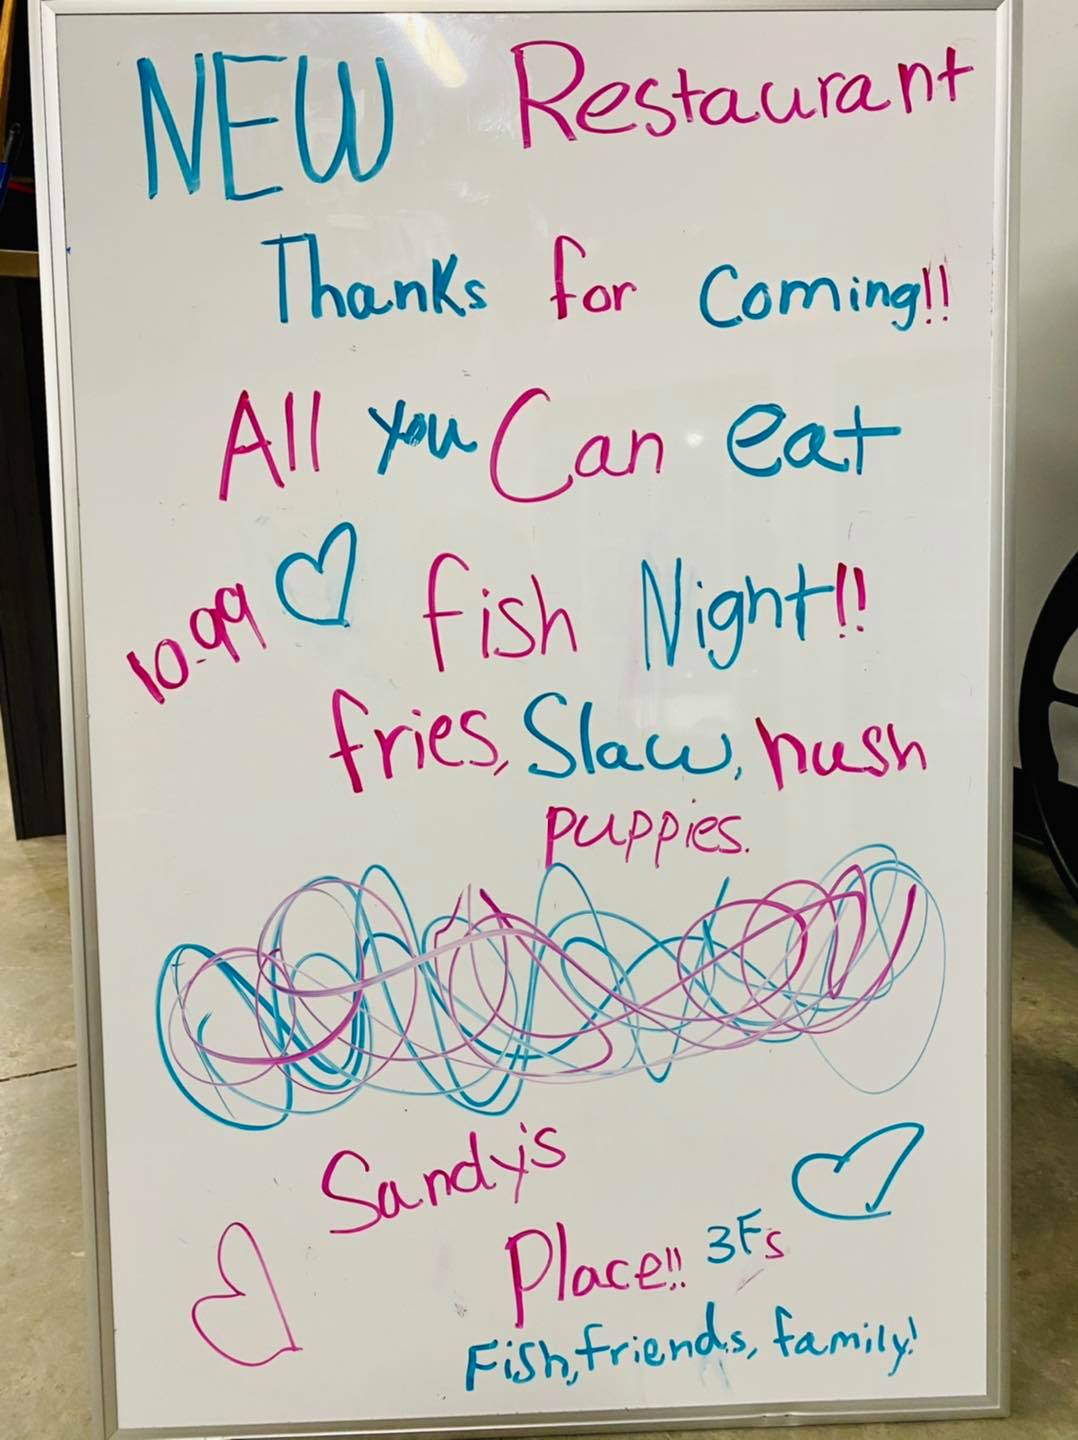 NEW Restaurant
Thanks for Coming!!
All you Can eat
10.99 fish Night!!
fries, Slaw, hush
puppies.
Sandy's
Place!! 3Fs
Fish, friends, family!